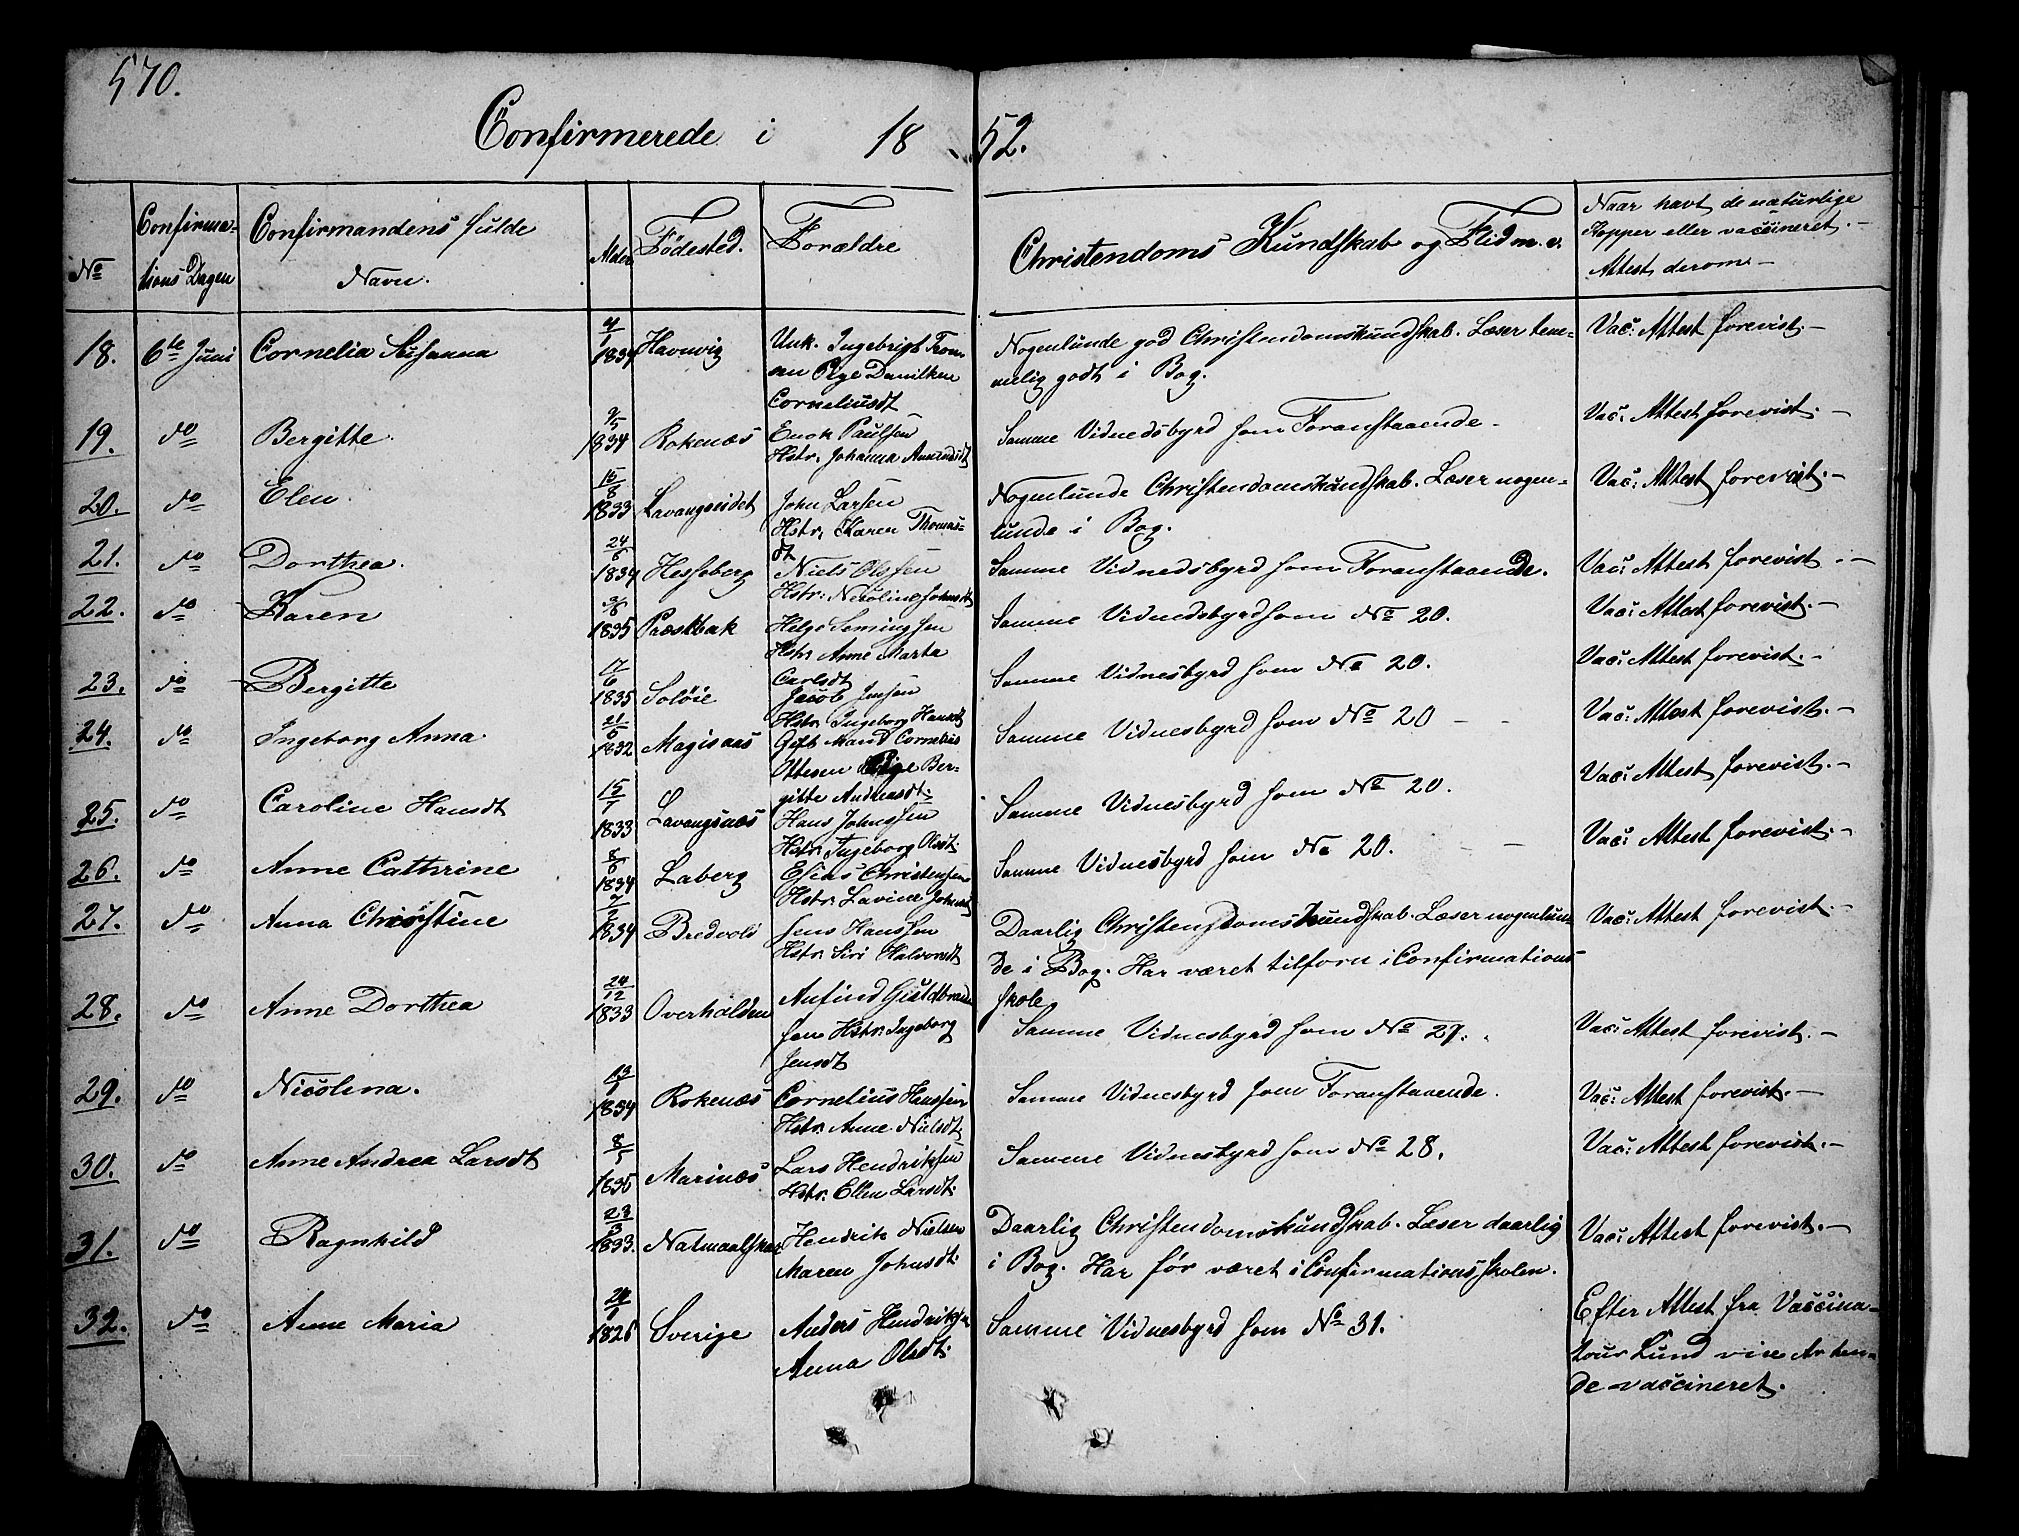 570.
Confirmerede i 1852.
No
Confirma-
tions Dagen
Confirmandens fulde
Navn.
Alder
Fødested.
Forældre
Christendoms Kundskab og Flid m. v.
Naar havt de naturlige
Kopper eller vaccineret. -
Attest derom -
18. 6te Juni Cornelia Susanna 4/1 1834 Havnvig Unk. Ingebrigt Trons
sen Pige Danilken
Corneliusdt
Nogenlunde god Christendomskundskab. Læser tem-
melig godt i Bog.
Vac: Attest forevist. -
19. do Bergitte. 9/5 1834 Rokenæs Enok Paulsen
Hstr. Johanna Amundsdt
Samme Vidnedsbyrd som Foranstaaende -
Vac: Attest forevist. -
20. do Elen. 15/8 1833 Lavangseidet John Larsen
Hstr. Karen Thomas-
dt
Nogenlunde Christendomskundskab. Læser nogen-
lunde i Bog.
Vac: Attest forevist. -
21. do Dorthea. 24/6 1834 Hesseberg Niels Olssen
Hstr. Nicoline Johnsdt
Samme Vidnedsbyrd som Foranstaaende.
Vac: Attest forevist. -
22. do Karen 3/6 1835 Præstbak Helge Simingsen
Hstr. Anne Marta
Carlsdt
Samme Vidnedsbyrd som No 20.
Vac: Attest forevist. -
23. do Bergitte 17/6 1835 Soløie Jacob Jensen
Hstr. Ingeborg Hansdt
Samme Vidnesbyrd som No 20.
Vac: Attest forevist. -
24. do Ingeborg Anna. 21/6 1832 Magisaas Gift Mand Cornelius
Ottesen Pige Ber-
gitte Andreasdt.
Samme Vidnesbyrd som No 20 - -
Vac: Attest forevist. -
25. do Caroline Hansdt 15/7 1833 Lavangsnæs Hans Johnssen
Hstr. Ingeborg Olsdt.
Samme Vidnesbyrd som No 20.
Vac: Attest forevist. -
26. do Anne Cathrine 8/6 1834 Laberg Elias Christensen
Hstr. Lavine Johnsdt
Samme Vidnesbyrd som No 20. - -
Vac: Attest forevist. -
27. do Anna Christine 1834 Bredvold Jens Hanssen
Hstr. Siri Halvorsdt
Daarlig Christendomskundskab. Læser nogenlun-
de i Bog. Har været tilforn i Confirmations-
skole
Vac: Attest forevist. -
28. do Anne Dorthea 24/12 1833 Overhalden Anfind Guldbrand-
sen Hstr. Ingeborg
Jensdt
Samme Vidnesbyrd som No 27.
Vac: Attest forevist. -
29. do Nicolina. 1834 Rokenæs Cornelius Hanssen
Hstr. Anne Nielsdt.
Samme Vidnesbyrd som Foranstaaende.
Vac: Attest forevist. -
30. do Anne Andrea Larsdt 1835 Marinæs Lars Hendriksen
Hstr. Ellen Larsdt.
Samme Vidnesbyrd som No 28.
Vac: Attest forevist. -
31. do Ragnhild 23/3 1833. Natmaalskar Hendrik Nielsen
Maren Johnsdt.
Daarlig Christendomskundskab. Læser daarlig
i Bog. Har før været i Confirmationsskolen.
Vac: Attest forevist. -
32. do Anne Maria 1826 Sverige Anders Hendriksen
Anna Olsdt.
Samme Vidnesbyrd som No 31.
Efter Attest fra Vaccina-
teur Lund
de vaccineret.